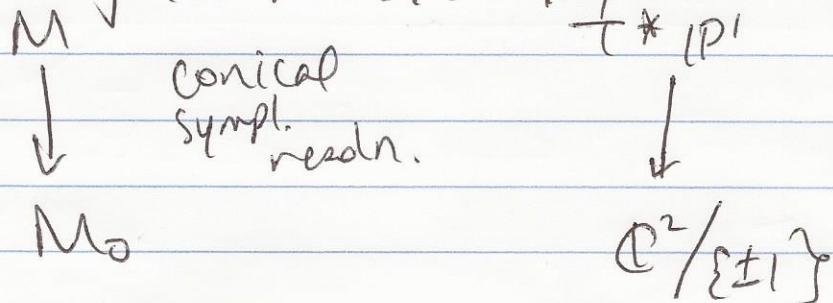 M T* ℙ¹
conical
sympl.
resoln.
M₀ ℂ²/{±1}